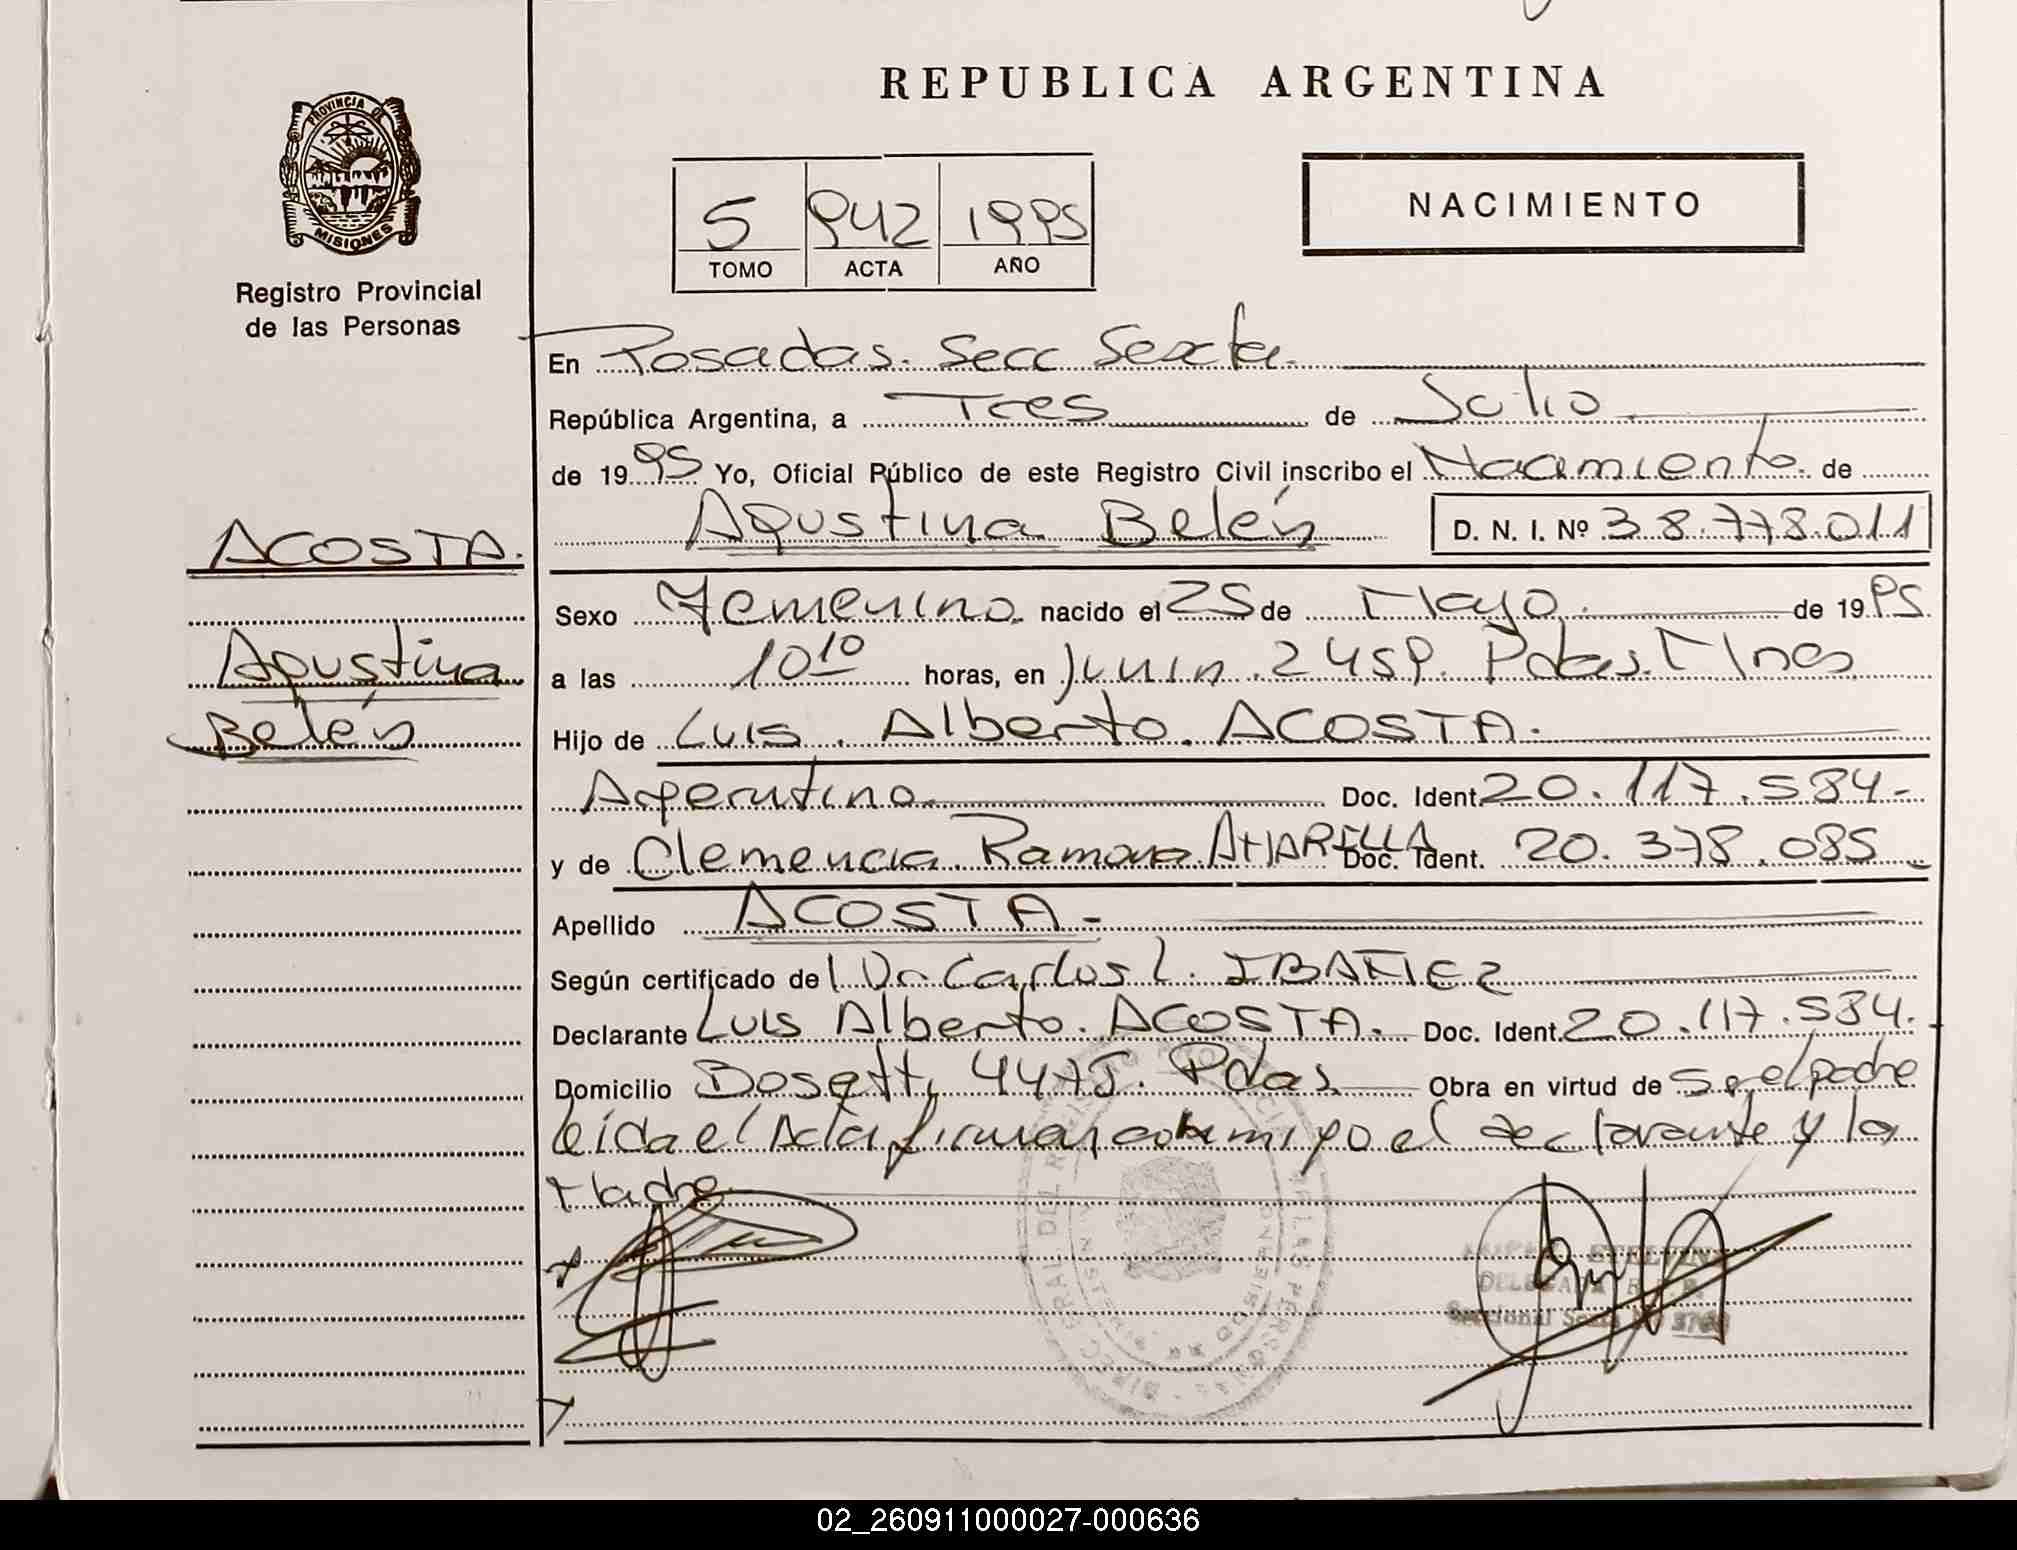 REPUBLICA ARGENTINA
PROVINCIA DE
MISIONES
Registro Provincial
de las Personas
NACIMIENTO
5 942 1995
TOMO ACTA AÑO
En Posadas. Secc Sexta.
República Argentina, a Tres de Julio
de 1995 Yo, Oficial Público de este Registro Civil inscribo el Nacimiento de
Agustina Belén D. N. I. Nº 38.778.011
ACOSTA.
Agustina
Belén
Sexo Femenino nacido el 25 de Mayo de 1995
a las 10 10 horas, en Junin 2459. Pdas. Mnes
Hijo de Luis Alberto ACOSTA.
Argentino Doc. Ident. 20.117.534-
y de Clemencia Ramona Doc. Ident. 20.378.085
Apellido ACOSTA-
Según certificado de Dr Carlos L. IBAÑEZ
Declarante Luis Alberto ACOSTA. Doc. Ident. 20.117.534.
Domicilio Bosetti 4475. Pdas Obra en virtud de ser el padre
leida el Acta firman conmigo el declarante y la
Madre
DELEGADA R. P. P.
Seccional Sexta
02_260911000027-000636